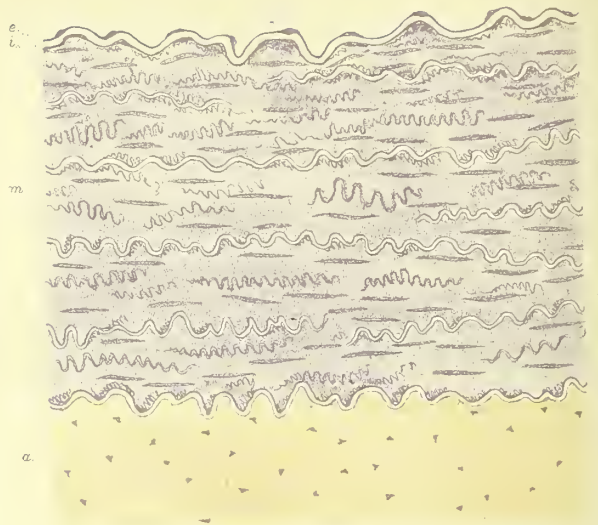 e.
i.
m
a.